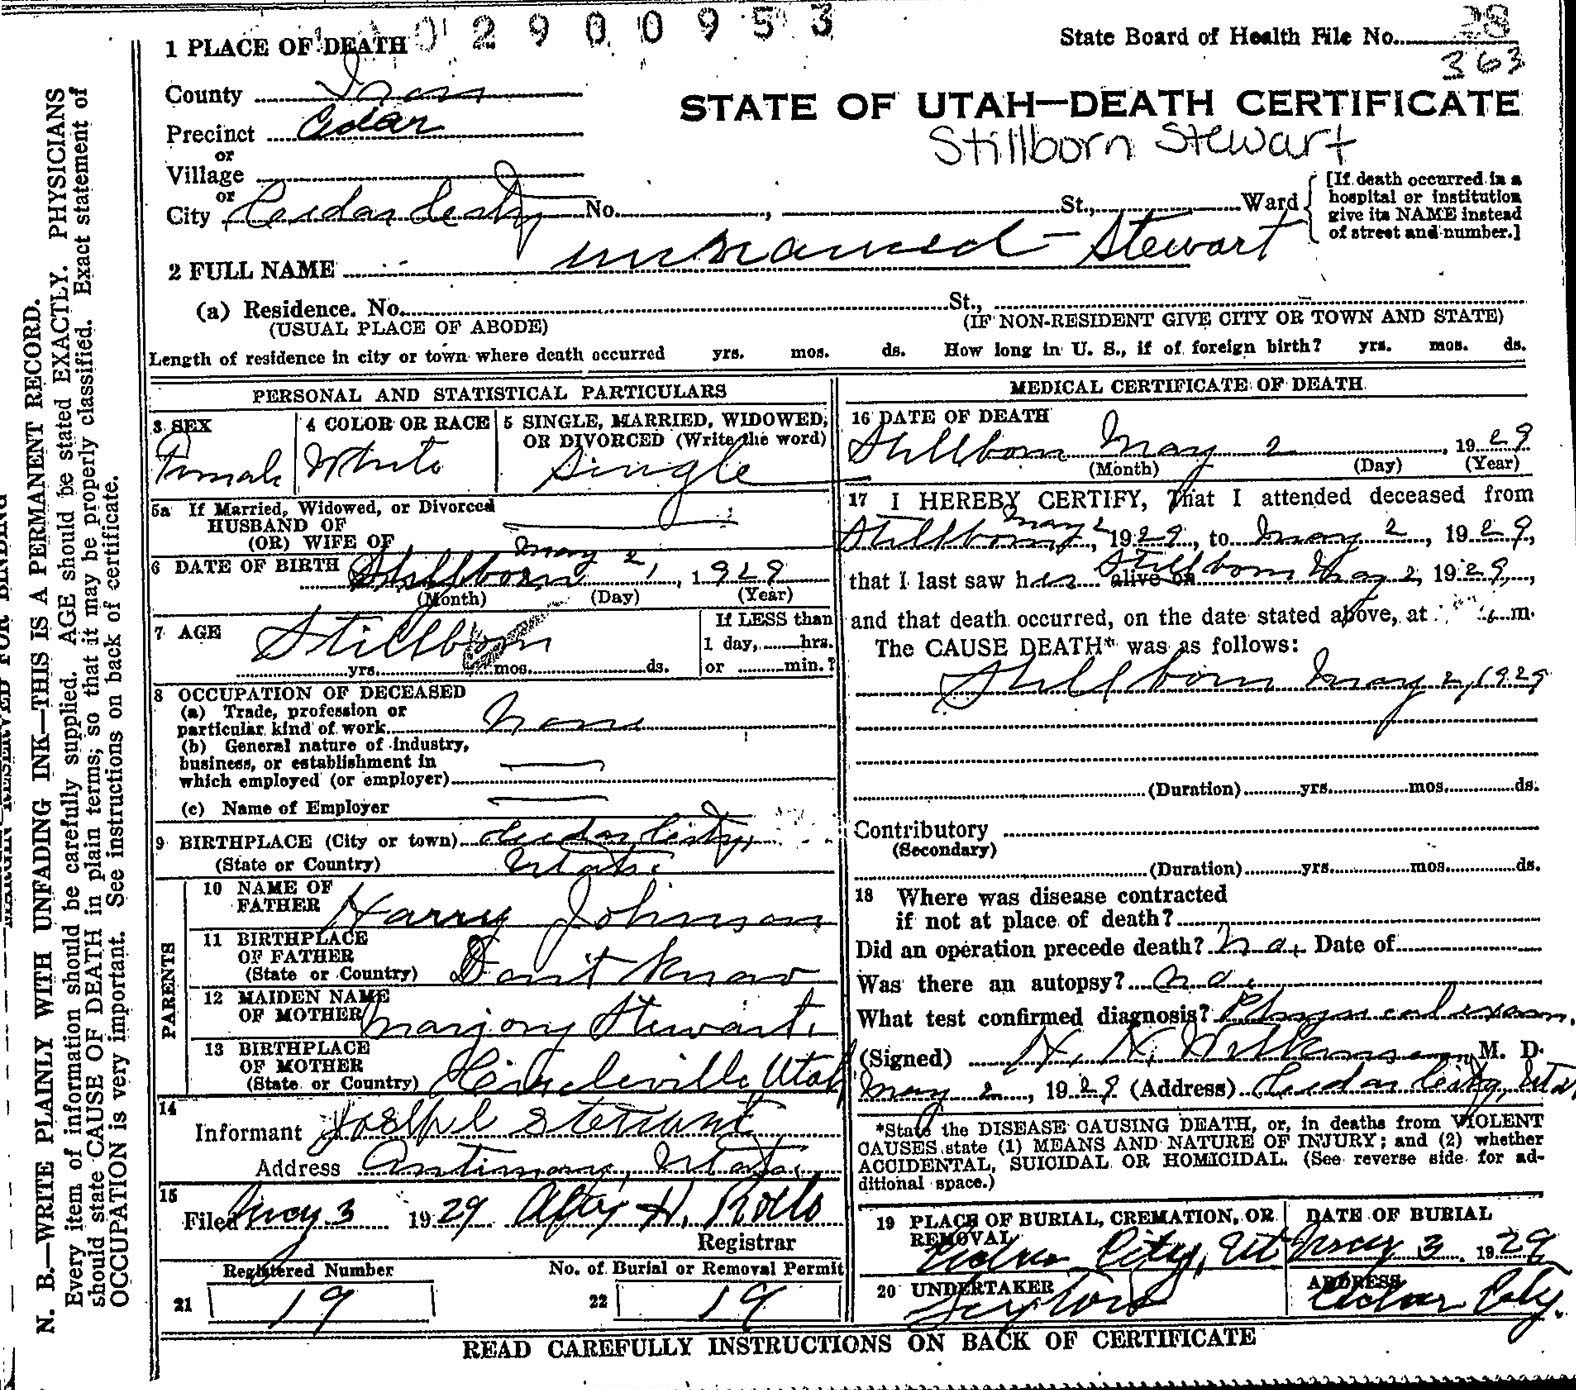 02900953
State Board of Health File No. 28
363
1 PLACE OF DEATH
County Iron
Precinct Cedar
or
Village
or
City Cedar City No. , St., Ward
[If death occurred in a hospital or institution give its NAME instead of street and number.]
STATE OF UTAH—DEATH CERTIFICATE
Stillborn Stewart
2 FULL NAME unnamed - Stewart
(a) Residence. No. St.,
(USUAL PLACE OF ABODE) (IF NON-RESIDENT GIVE CITY OR TOWN AND STATE)
Length of residence in city or town where death occurred yrs. mos. ds. How long in U. S., if of foreign birth? yrs. mos. ds.
PERSONAL AND STATISTICAL PARTICULARS
3 SEX
Female
4 COLOR OR RACE
White
5 SINGLE, MARRIED, WIDOWED, OR DIVORCED (Write the word)
Single
5a If Married, Widowed, or Divorced
HUSBAND OF
(OR) WIFE OF
6 DATE OF BIRTH Stillborn May 2, 1929
(Month) (Day) (Year)
7 AGE Stillborn
yrs. mos. ds.
If LESS than
1 day, hrs.
or min.?
8 OCCUPATION OF DECEASED
(a) Trade, profession or
particular kind of work None
(b) General nature of industry,
business, or establishment in
which employed (or employer)
(c) Name of Employer
9 BIRTHPLACE (City or town) Cedar City,
(State or Country) Utah.
PARENTS
10 NAME OF
FATHER Harry Johnson
11 BIRTHPLACE
OF FATHER
(State or Country) Don't know
12 MAIDEN NAME
OF MOTHER Marjory Stewart.
13 BIRTHPLACE
OF MOTHER
(State or Country) Circleville Utah
14
Informant Joseph Stewart
Address Antimony, Utah.
15
Filed May 3 1929 H. Rollo
Registrar
Registered Number
21 19
No. of Burial or Removal Permit
22 19
MEDICAL CERTIFICATE OF DEATH
16 DATE OF DEATH
Stillborn May 2, 1929
(Month) (Day) (Year)
17 I HEREBY CERTIFY, That I attended deceased from
Stillborn May 2, 1929, to May 2, 1929,
that I last saw her alive on Stillborn May 2, 1929,
and that death occurred, on the date stated above, at m.
The CAUSE DEATH* was as follows:
Stillborn May 2, 1929
(Duration) yrs. mos. ds.
Contributory
(Secondary)
(Duration) yrs. mos. ds.
18 Where was disease contracted
if not at place of death?
Did an operation precede death? no. Date of
Was there an autopsy? no.
What test confirmed diagnosis? Physical exam.
(Signed) Wilkinson, M. D.
May 2, 1929 (Address) Cedar City, Utah
*State the DISEASE CAUSING DEATH, or, in deaths from VIOLENT
CAUSES state (1) MEANS AND NATURE OF INJURY; and (2) whether
ACCIDENTAL, SUICIDAL OR HOMICIDAL. (See reverse side for ad-
ditional space.)
19 PLACE OF BURIAL, CREMATION, OR
REMOVAL
Cedar City, Ut
DATE OF BURIAL
May 3 1929
20 UNDERTAKER
ADDRESS
Cedar City.
READ CAREFULLY INSTRUCTIONS ON BACK OF CERTIFICATE
MARGIN RESERVED FOR BINDING
N. B.—WRITE PLAINLY WITH UNFADING INK—THIS IS A PERMANENT RECORD.
Every item of information should be carefully supplied. AGE should be stated EXACTLY. PHYSICIANS
should state CAUSE OF DEATH in plain terms; so that it may be properly classified. Exact statement of
OCCUPATION is very important. See instructions on back of certificate.